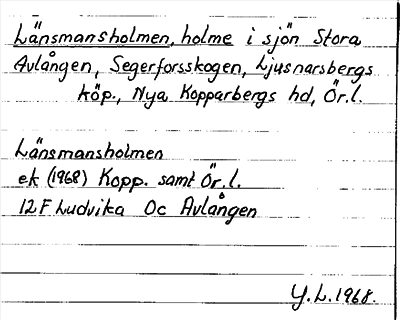 Länsmansholmen, holme i sjön Stora
Avlången, Segerforsskogen, Ljusnarsbergs
köp., Nya Kopparbergs hd, Ör.l.
Länsmansholmen
ek (1968) Kopp. samt Ör.l.
12F Ludvika Oc Avlången
Y.L.1968.